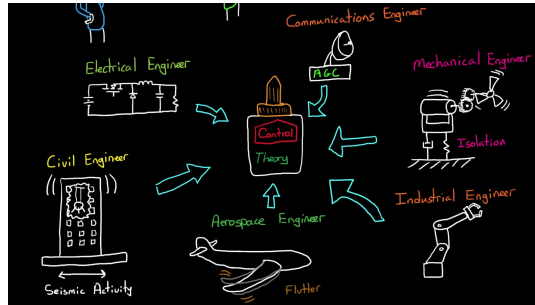 Communications Engineer
Electrical Engineer
AGC
Mechanical Engineer
Control
Theory
Isolation
Civil Engineer
Industrial Engineer
Aerospace Engineer
Seismic Activity
Flutter